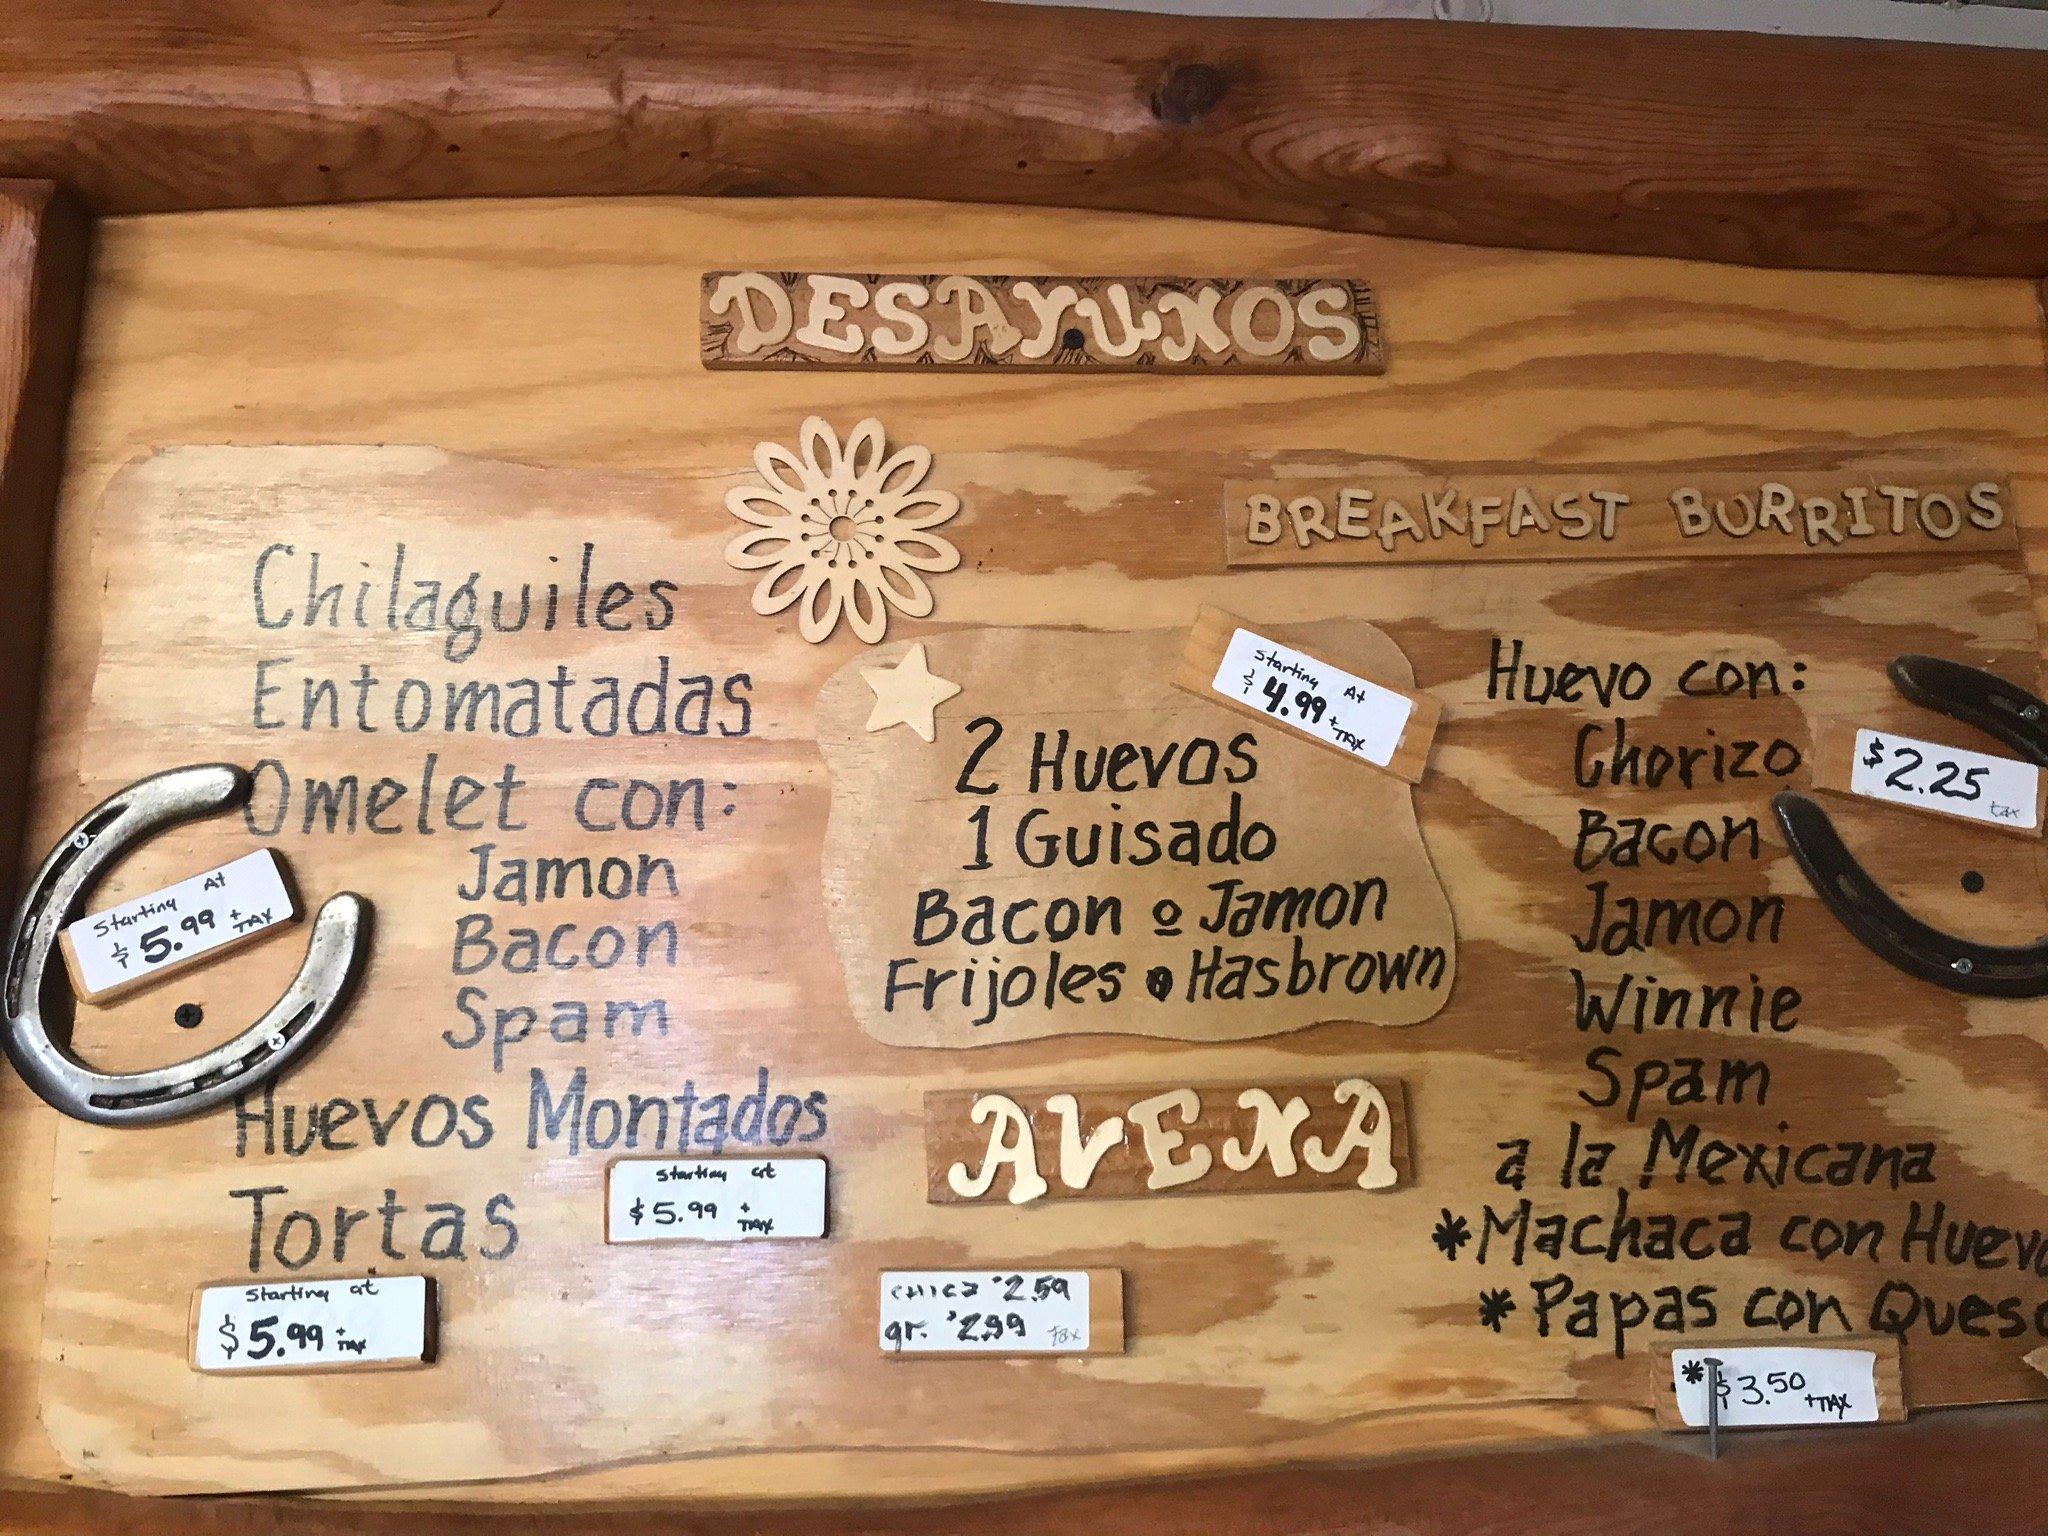 DESAYUNOS
Chilaguiles
Entomatadas
Omelet con:
Jamon
Bacon
Spam
Starting At
$5.99 + TAX
Huevos Montados
Starting at
$5.99 + TAX
Tortas
Starting at
$5.99 + TAX
Starting At
$4.99 + TAX
2 Huevos
1 Guisado
Bacon o Jamon
Frijoles o Hasbrown
AVENA
chica $2.59
gr. $2.99 tax
BREAKFAST BURRITOS
Huevo con:
Chorizo
$2.25 tax
Bacon
Jamon
Winnie
Spam
a la Mexicana
*Machaca con Huevo
*Papas con Queso
*$3.50 +TAX